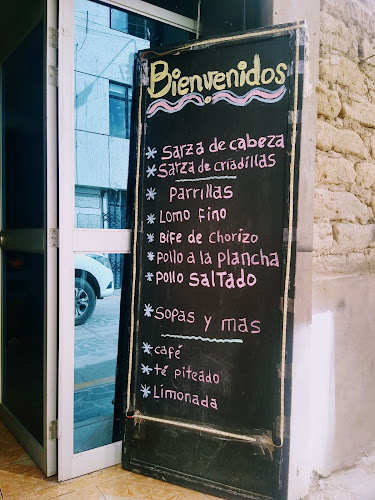 Bienvenidos
* Sarza de cabeza
* Sarza de criadillas
* Parrillas
* Lomo fino
* Bife de Chorizo
* Pollo a la plancha
* Pollo SALTADO
* Sopas y mas
* café
* té piteado
* Limonada